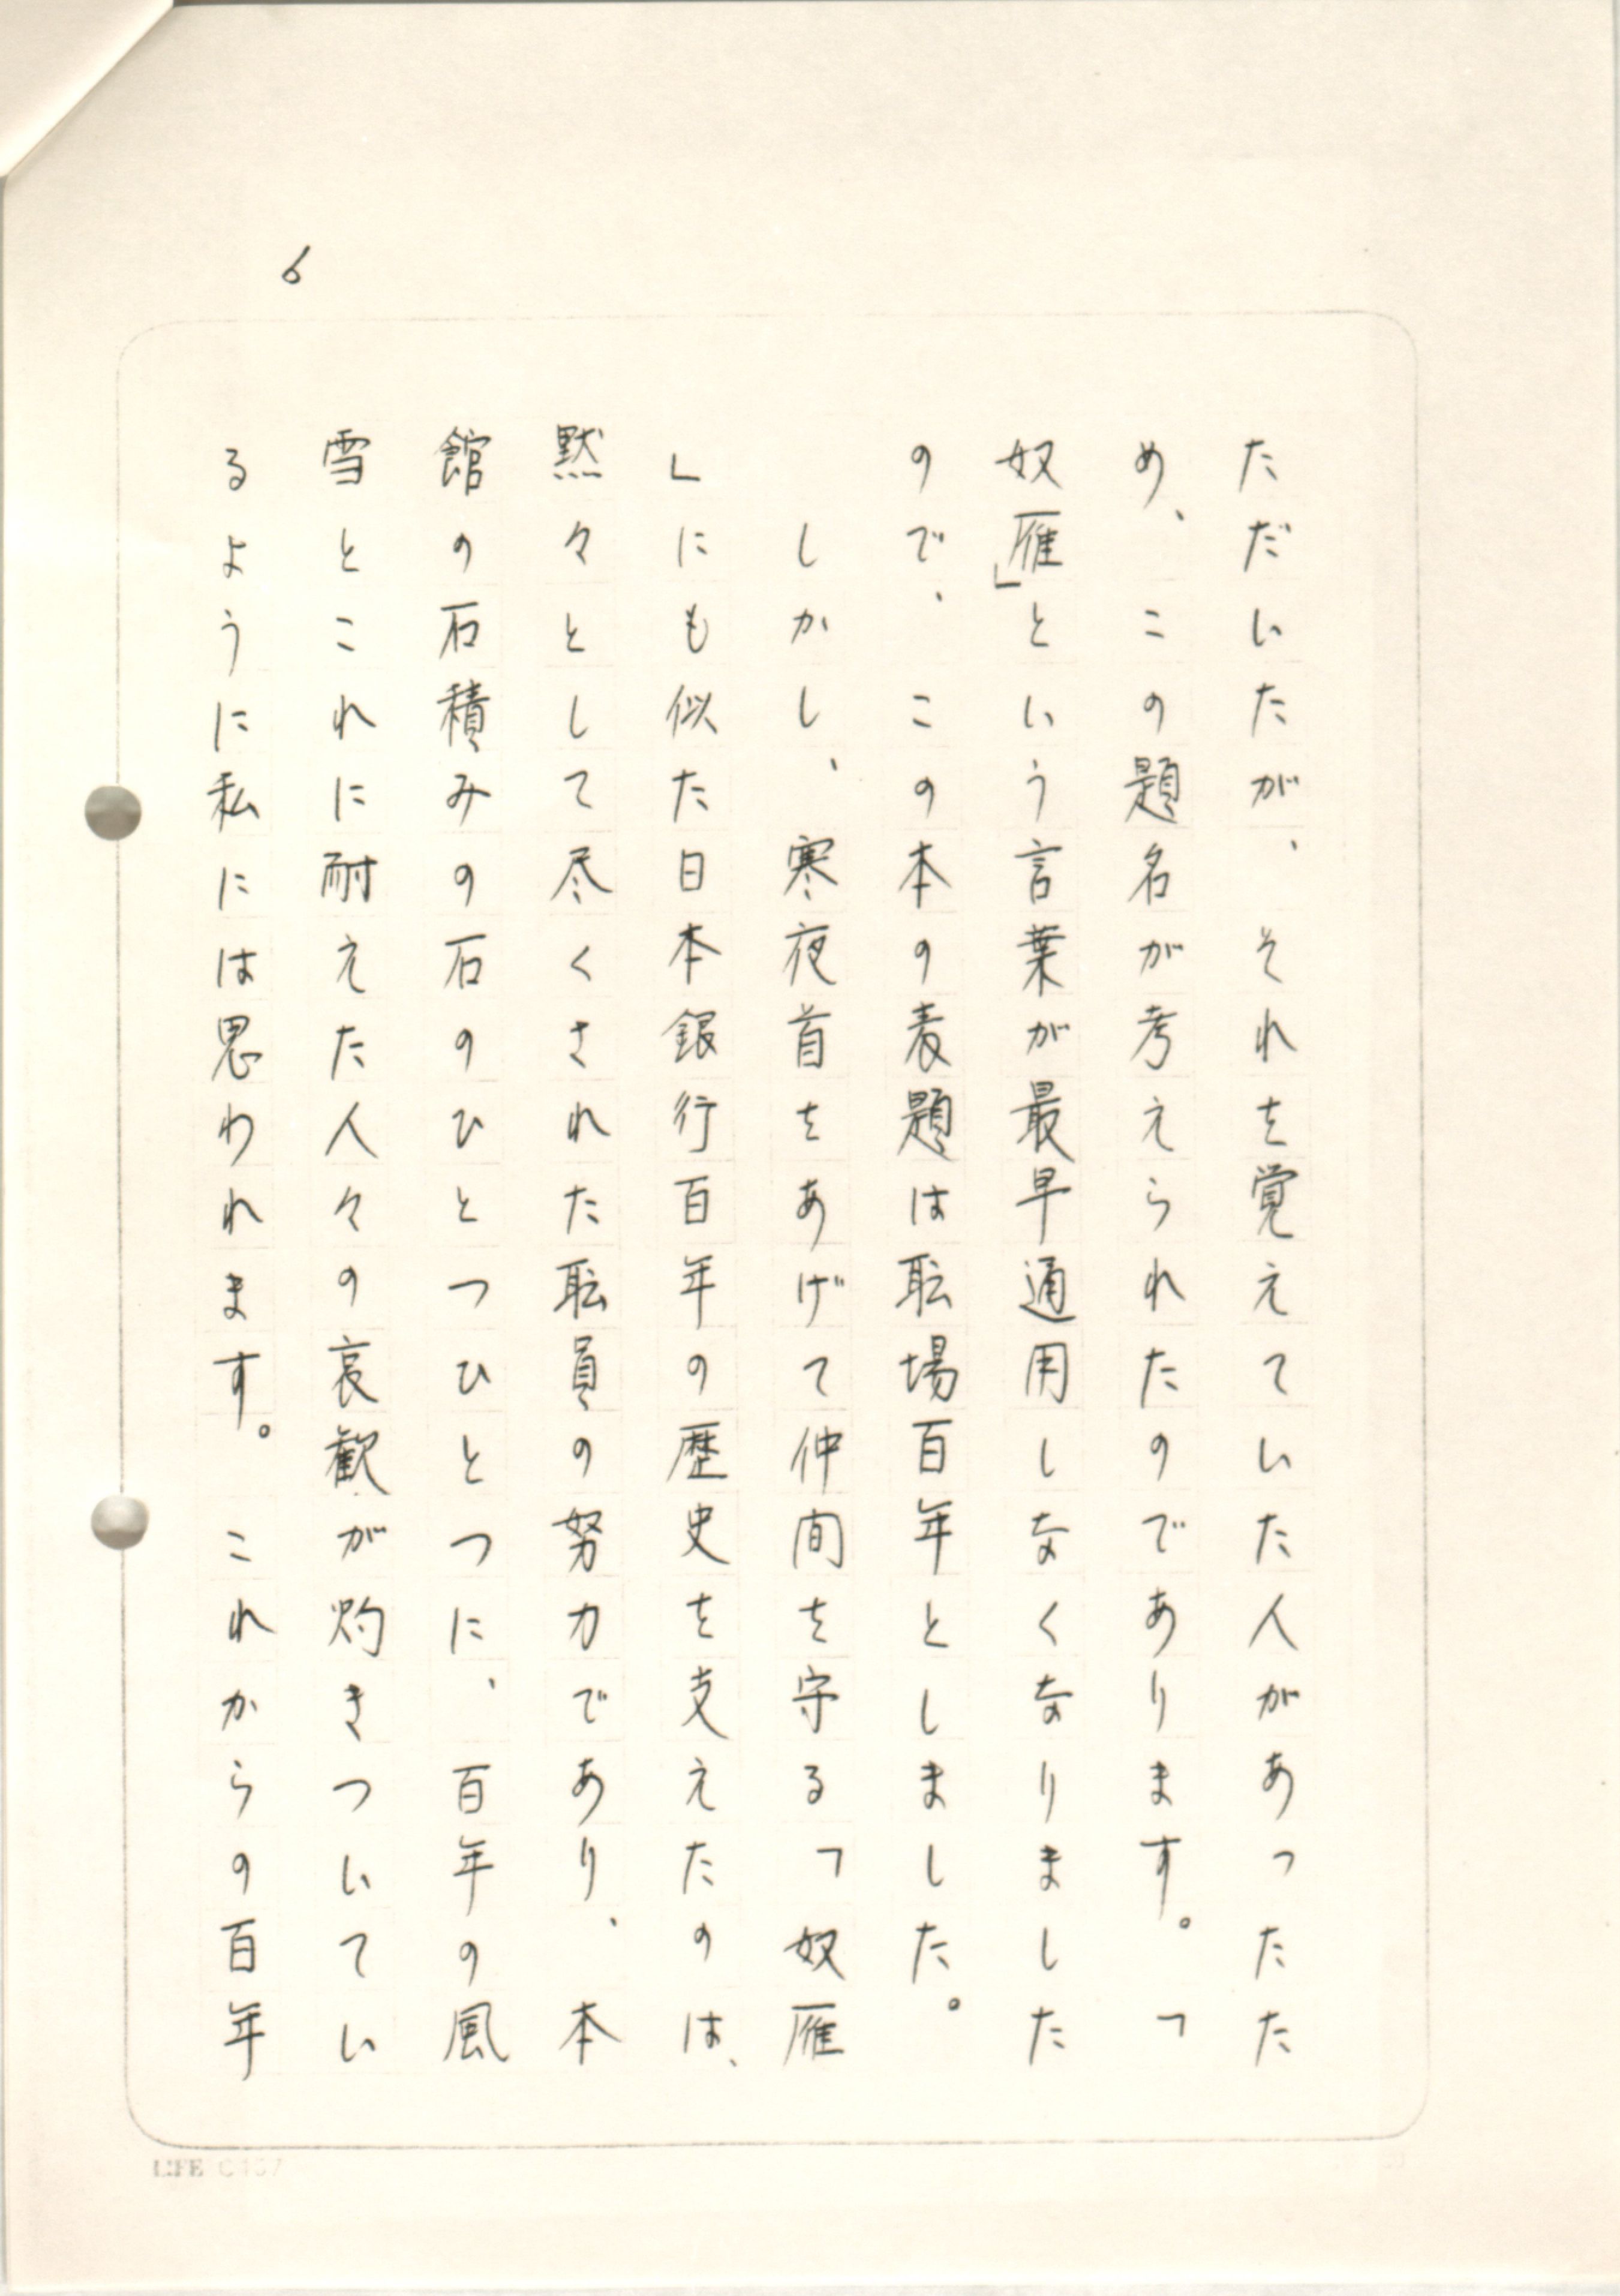 6
ただいたが、それを覚えていた人があったた
め、この題名が考えられたのであります。「
奴雁」という言葉が最早通用しなくなりました
ので、この本の表題は耺場百年としました。
しかし、寒夜首をあげて仲間を守る「奴雁
」にも似た日本銀行百年の歴史を支えたのは、
黙々として尽くされた耺員の努力であり、本
館の石積みの石のひとつひとつに、百年の風
雪とこれに耐えた人々の哀歓が灼きついてい
るように私には思われます。これからの百年
LIFE C157